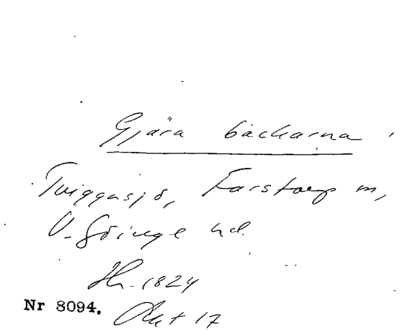 Gjära backarna
Tviggasjö, Farstorp sn,
V. Göinge hd.
Sk. 1824
Nr 8094. Akt 17